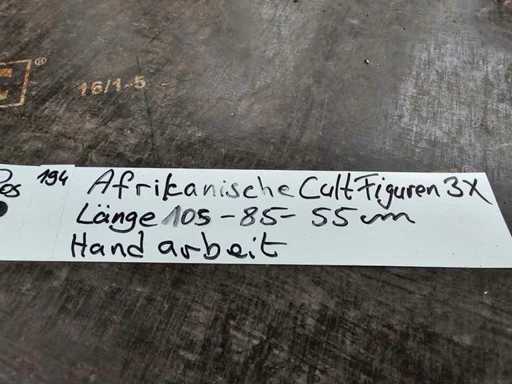 16/1-5
Pos 194
Afrikanische Cult Figuren 3x
Länge 105 - 85 - 55 cm
Hand arbeit